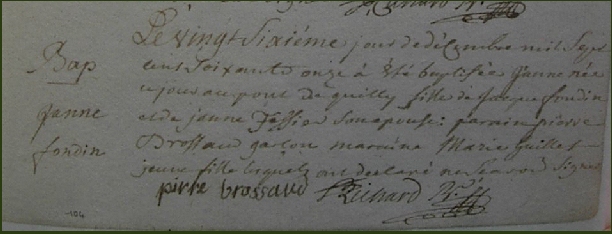 Richard Pr.
Le vingt Sixiéme jour de décembre mil Sept
Bap
cent Soixante onze à été baptisée janne née
ce jour au pont De guilly fille de jacque fondin
janne
et de janne Son epouse: parain pierre
fondin
Brossaud garçon maraine Marie Guillet
jeune fille lesquels ont declaré ne Scavoir Signer
pirre brossaud Richard Pr.
-104